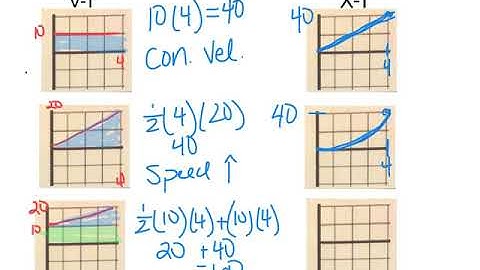 V-T
X-T
10
4
10(4)=40
Con. Vel.
40
4
20
4
½(4)(20)
40
Speed ↑
40
4
20
10
½(10)(4)+(10)(4)
20 +40